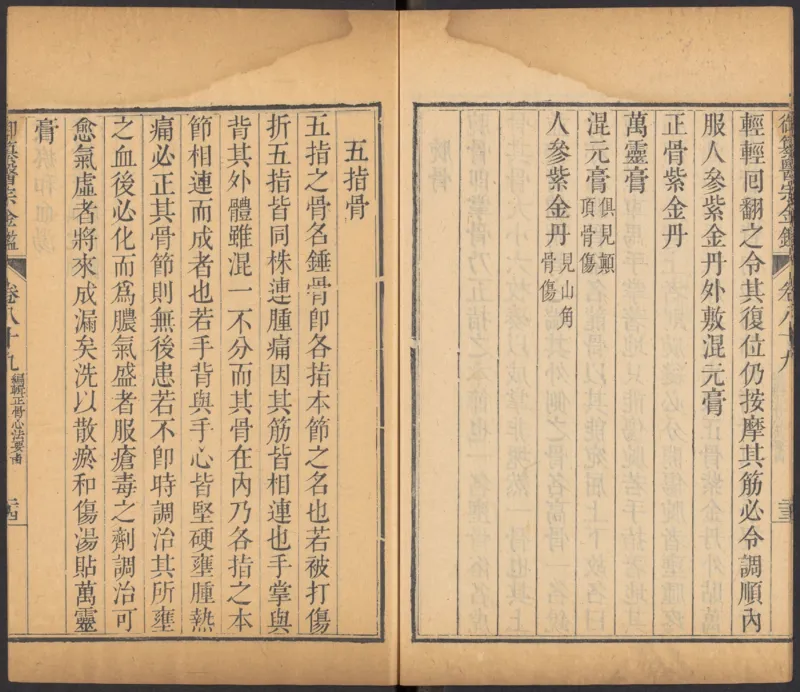 輕輕回翻之令其復位仍按摩其筋必令調順內
服人參紫金丹外敷混元膏
正骨紫金丹
萬靈膏
混元膏俱見顛頂骨傷
人參紫金丹見山角骨傷
五指骨
五指之骨名錘骨卽各指本節之名也若被打傷
折五指皆同株連腫痛因其筋皆相連也手掌與
背其外體雖混一不分而其骨在內乃各指之本
節相連而成者也若手背與手心皆堅硬壅腫熱
痛必正其骨節則無後患若不卽時調治其所壅
之血後必化而爲膿氣盛者服瘡毒之劑調治可
愈氣虛者將來成漏矣洗以散瘀和傷湯貼萬靈
膏
御纂醫宗金鑑 卷八十九 編輯正骨心法要旨